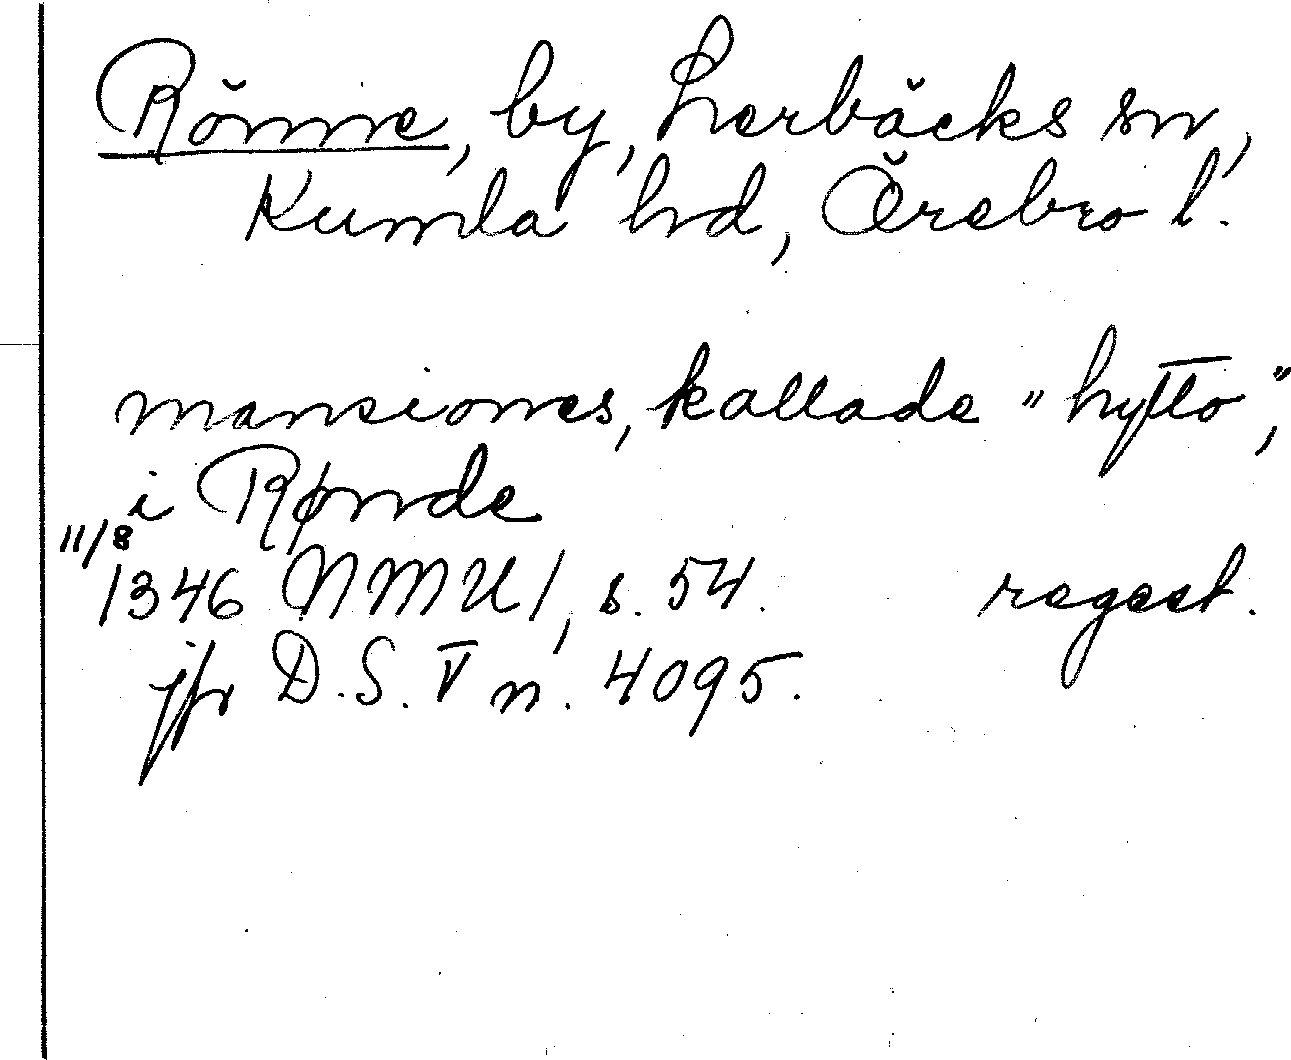 Rönne, by, Lerbäcks sn,
Kumla hd, Örebro l.
mansiones, kallade "hytto",
i Rønde
11/8
1346 NMU 1, s. 54. regest.
jfr D.S. V n. 4095.